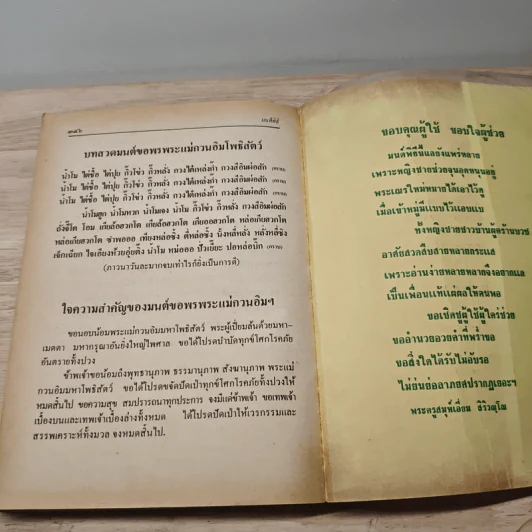 ๑๔๖
มนต์พิธี
บทสวดมนต์ขอพรพระแม่กวนอิมโพธิสัตว์
นำโม ไต่ชื้อ ไต่ปุย กิ้วโข่ว กิ้วหลั่ง กวงไต๋เหล่งก้ำ กวงสี่อิมผ่อสัก (กราบ)
นำโม ไต่ชื้อ ไต่ปุย กิ้วโข่ว กิ้วหลั่ง กวงไต๋เหล่งก้ำ กวงสี่อิมผ่อสัก (กราบ)
นำโม ไต่ชื้อ ไต่ปุย กิ้วโข่ว กิ้วหลั่ง กวงไต๋เหล่งก้ำ กวงสี่อิมผ่อสัก (กราบ)
นำโมฮูก นำโมหวก นำโมเจง นำโม กิ้วโข่ว กิ้วหลั่ง กวงสี่อิมผ่อสัก
(ภาวนาวันละมากจบเท่าไรก็ยิ่งเป็นการดี)
ใจความสำคัญของมนต์ขอพรพระแม่กวนอิมฯ
ขอนอบน้อมพระแม่กวนอิมมหาโพธิสัตว์ พระผู้เปี่ยมล้นด้วยมหา-
เมตตา มหากรุณาอันยิ่งใหญ่ไพศาล ขอได้โปรดบำบัดทุกข์โศกโรคภัย
อันตรายทั้งปวง
ข้าพเจ้าขอน้อมถึงพุทธานุภาพ ธรรมานุภาพ สังฆานุภาพ พระแม่
กวนอิมมหาโพธิสัตว์ ขอได้โปรดขจัดปัดเป่าทุกข์โศกโรคภัยทั้งปวงให้
หมดสิ้นไป ขอความสุข สมปรารถนาทุกประการ จงมีแด่ข้าพเจ้า ขอเทพเจ้า
เบื้องบนและเทพเจ้าเบื้องล่างทั้งหมด ได้โปรดปัดเป่าให้เวรกรรมและ
สรรพเคราะห์ทั้งมวล จงหมดสิ้นไป.
ขอบคุณผู้ใช้ ขอบใจผู้ช่วย
มนต์พิธีแลยังแพร่หลาย
เพราะหญิงชายช่วยจุนอุดหนุนอยู่
พระเณรใหม่หมายได้เอาไว้ดู
เมื่อเข้าหมู่มีแบบไว้แอบแนบ
ทั้งหญิงชายชาวบ้านผู้คร้านบวช
อาศัยสวดสืบสายหลายกระแส
เพราะอ่านง่ายหลายหลายจึงอยากแล
เป็นเพื่อนแท้แต่ผลให้ตนพอ
ขอเชิดชูผู้ใช้ผู้ใคร่ช่วย
ขออำนวยอวยคำที่พร่ำขอ
ขอสิ่งใดได้รับไม่อับรอ
ไม่ย่นย่อลาภยศปรากฏเธอฯ
พระครูสมุห์เอี่ยม สิริวณฺโณ